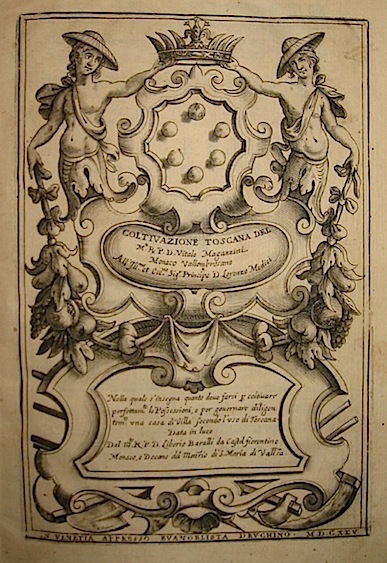 COLTIVAZIONE TOSCANA DEL
M.R.P.D. Vitale Magazzini
Monaco Vallombrosano
All' Ill. et Ecc. Sig. Principe D. Lorenzo Medici
Nella quale s'insegna quanto deve farsi p coltivare
perfettam. le Possessioni, e per governare diligen
tem. una casa di Villa secondo l'uso di Toscana
Data in luce
Dal M.R.P.D. Liberio Baralli da Castelfiorentino
Monaco, e Decano del Mon.rio di S. Maria di Vall.sa
IN VENETIA APPRESSO EVANGELISTA DEUCHINO. M.D.C.XXV.